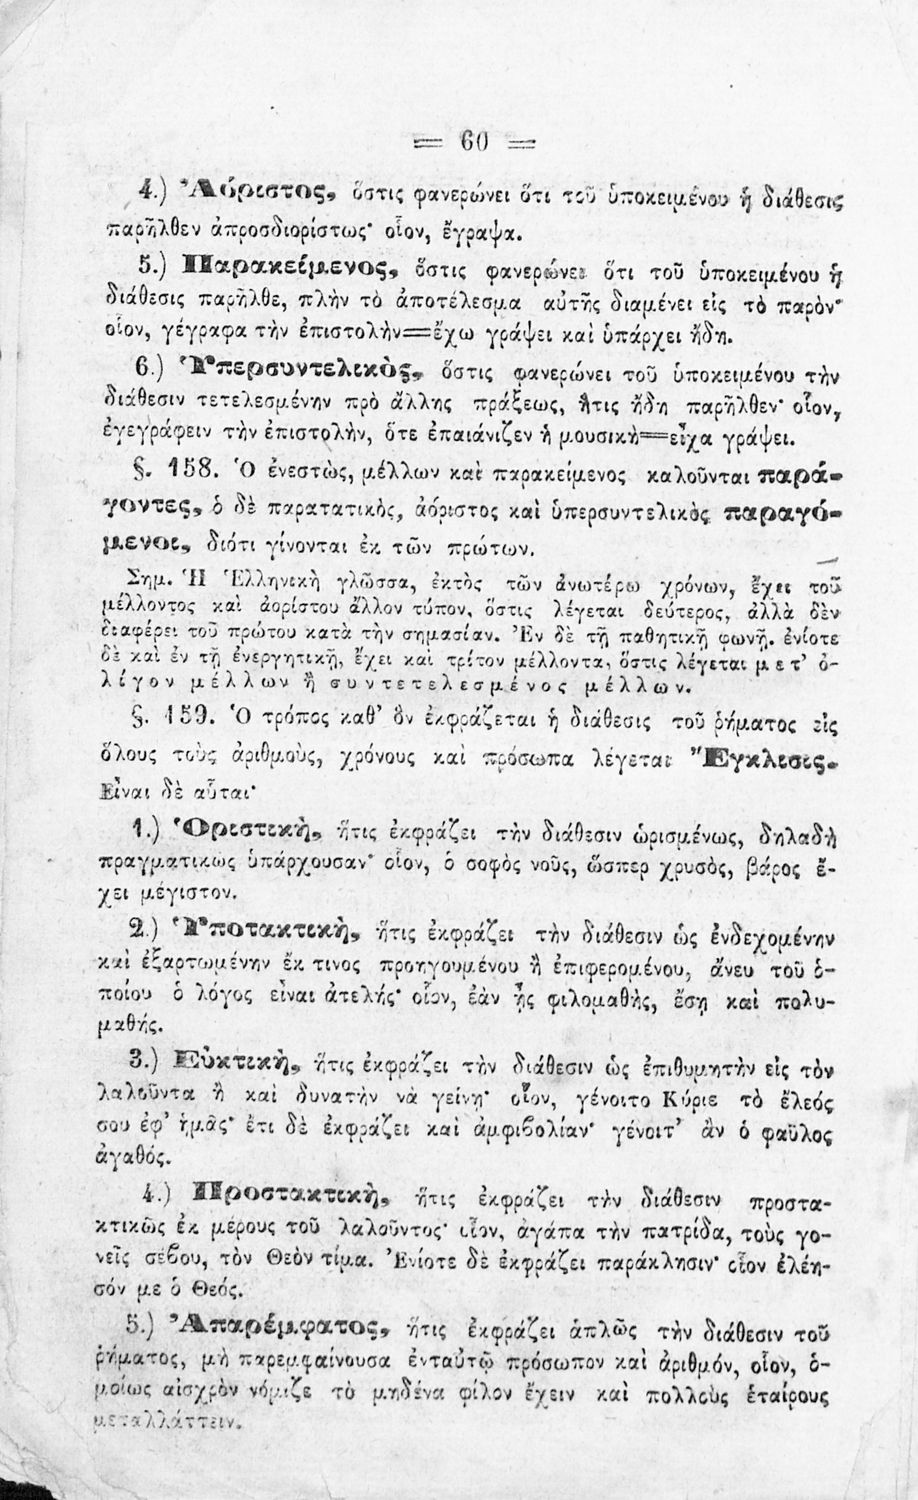 = 60 =
4.) Ἀόριστος, ὅστις φανερώνει ὅτι τοῦ ὑποκειμένου ἡ διάθεσις
παρῆλθεν ἀπροσδιορίστως· οἷον, ἔγραψα.
5.) Παρακείμενος, ὅστις φανερώνει ὅτι τοῦ ὑποκειμένου ἡ
διάθεσις παρῆλθε, πλὴν τὸ ἀποτέλεσμα αὐτῆς διαμένει εἰς τὸ παρὸν·
οἷον, γέγραφα τὴν ἐπιστολὴν=ἔχω γράψει καὶ ὑπάρχει ἤδη.
6.) Ὑπερσυντελικὸς, ὅστις φανερώνει τοῦ ὑποκειμένου τὴν
διάθεσιν τετελεσμένην πρὸ ἄλλης πράξεως, ἥτις ἤδη παρῆλθεν· οἷον,
ἐγεγράφειν τὴν ἐπιστολὴν, ὅτε ἐπαιάνιζεν ἡ μουσικὴ=εἶχα γράψει.
§. 158. Ὁ ἐνεστὼς, μέλλων καὶ παρακείμενος καλοῦνται παρά-
γοντες, ὁ δὲ παρατατικὸς, ἀόριστος καὶ ὑπερσυντελικὸς παραγό-
μενοι, διότι γίνονται ἐκ τῶν πρώτων.
Σημ. Ἡ Ἑλληνικὴ γλῶσσα, ἐκτὸς τῶν ἀνωτέρω χρόνων, ἔχει τοῦ
μέλλοντος καὶ ἀορίστου ἄλλον τύπον, ὅστις λέγεται δεύτερος, ἀλλὰ δὲν
διαφέρει τοῦ πρώτου κατὰ τὴν σημασίαν. Ἐν δὲ τῇ παθητικῇ φωνῇ. ἐνίοτε
δὲ καὶ ἐν τῇ ἐνεργητικῇ, ἔχει καὶ τρίτον μέλλοντα, ὅστις λέγεται μετ' ὀ-
λίγον μέλλων ἢ συντετελεσμένος μέλλων.
§. 159. Ὁ τρόπος καθ' ὃν ἐκφράζεται ἡ διάθεσις τοῦ ῥήματος εἰς
ὅλους τοὺς ἀριθμοὺς, χρόνους καὶ πρόσωπα λέγεται Ἔγκλισις.
Εἶναι δὲ αὗται·
1.) Ὁριστικὴ, ἥτις ἐκφράζει τὴν διάθεσιν ὡρισμένως, δηλαδὴ
πραγματικως ὑπάρχουσαν· οἷον, ὁ σοφὸς νοῦς, ὥσπερ χρυσὸς, βάρος ἔ-
χει μέγιστον.
2.) Ὑποτακτικὴ, ἥτις ἐκφράζει τὴν διάθεσιν ὡς ἐνδεχομένην
καὶ ἐξαρτωμένην ἔκ τινος προηγουμένου ἢ ἐπιφερομένου, ἄνευ τοῦ ὁ-
ποίου ὁ λόγος εἶναι ἀτελής· οἷον, ἐὰν ᾖς φιλομαθὴς, ἔσῃ καὶ πολυ-
μαθής.
3.) Εὐκτικὴ, ἥτις ἐκφράζει τὴν διάθεσιν ὡς ἐπιθυμητὴν εἰς τὸν
λαλοῦντα ἢ καὶ δυνατὴν νὰ γείνῃ· οἷον, γένοιτο Κύριε τὸ ἔλεός
σου ἐφ' ἡμᾶς· ἔτι δὲ ἐκφράζει καὶ ἀμφιβολίαν· γένοιτ' ἂν ὁ φαῦλος
ἀγαθός.
4.) Προστακτικὴ, ἥτις ἐκφράζει τὴν διάθεσιν προστα-
κτικῶς ἐκ μέρους τοῦ λαλοῦντος· οἷον, ἀγάπα τὴν πατρίδα, τοὺς γο-
νεῖς σέβου, τὸν Θεὸν τίμα. Ἐνίοτε δὲ ἐκφράζει παράκλησιν· οἷον ἐλέη-
σόν με ὁ Θεός.
5.) Ἀπαρέμφατος, ἥτις ἐκφράζει ἁπλῶς τὴν διάθεσιν τοῦ
ῥήματος, μὴ παρεμφαίνουσα ἐνταὐτῷ πρόσωπον καὶ ἀριθμόν, οἷον, ὁ-
μοίως αἰσχρὸν νόμιζε τὸ μηδένα φίλον ἔχειν καὶ πολλοὺς ἑταίρους
μεταλλάττειν.